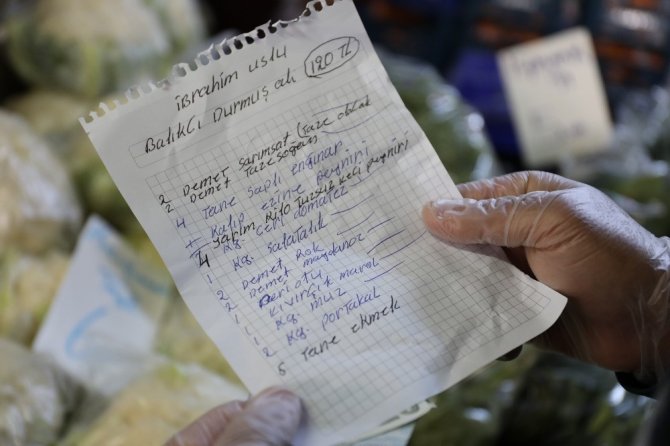 İBRAHİM USLU
BALIKÇI DURMUŞ ALİ 120 TL
2 Demet SARIMSAT (TAZE OLACAK
2 Demet TAZE SOĞAN
4 TANE SAPLI enginar
1 Kalıp ezine peyniri
YARIM Kilo TUZSUZ Keçi peyniri
4 Kg. ÇERİ domatez
1 Kg. SALATALIK
2 Demet ROK
2 Demet maydanoz
1 Dereotu
1 Kıvırçık marol
1 Kg. muz
2 Kg. PORTAKAL
5 TANE ekmek